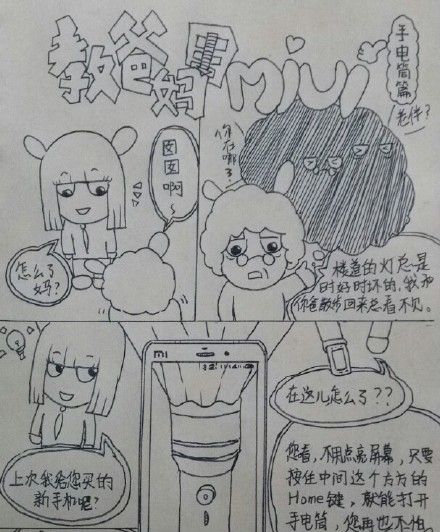 教爸妈用miui
手电筒篇
囡囡啊~
怎么了
妈?
你在哪了?
老伴?
楼道的灯总是
时好时坏的,我和
你爸散步回来总看不见。
上次我给您买的
新手机呢?
mi
在这儿怎么了??
您看,不用点亮屏幕,只要
按住中间这个方方的
Home键,就能打开
手电筒,您再也不怕